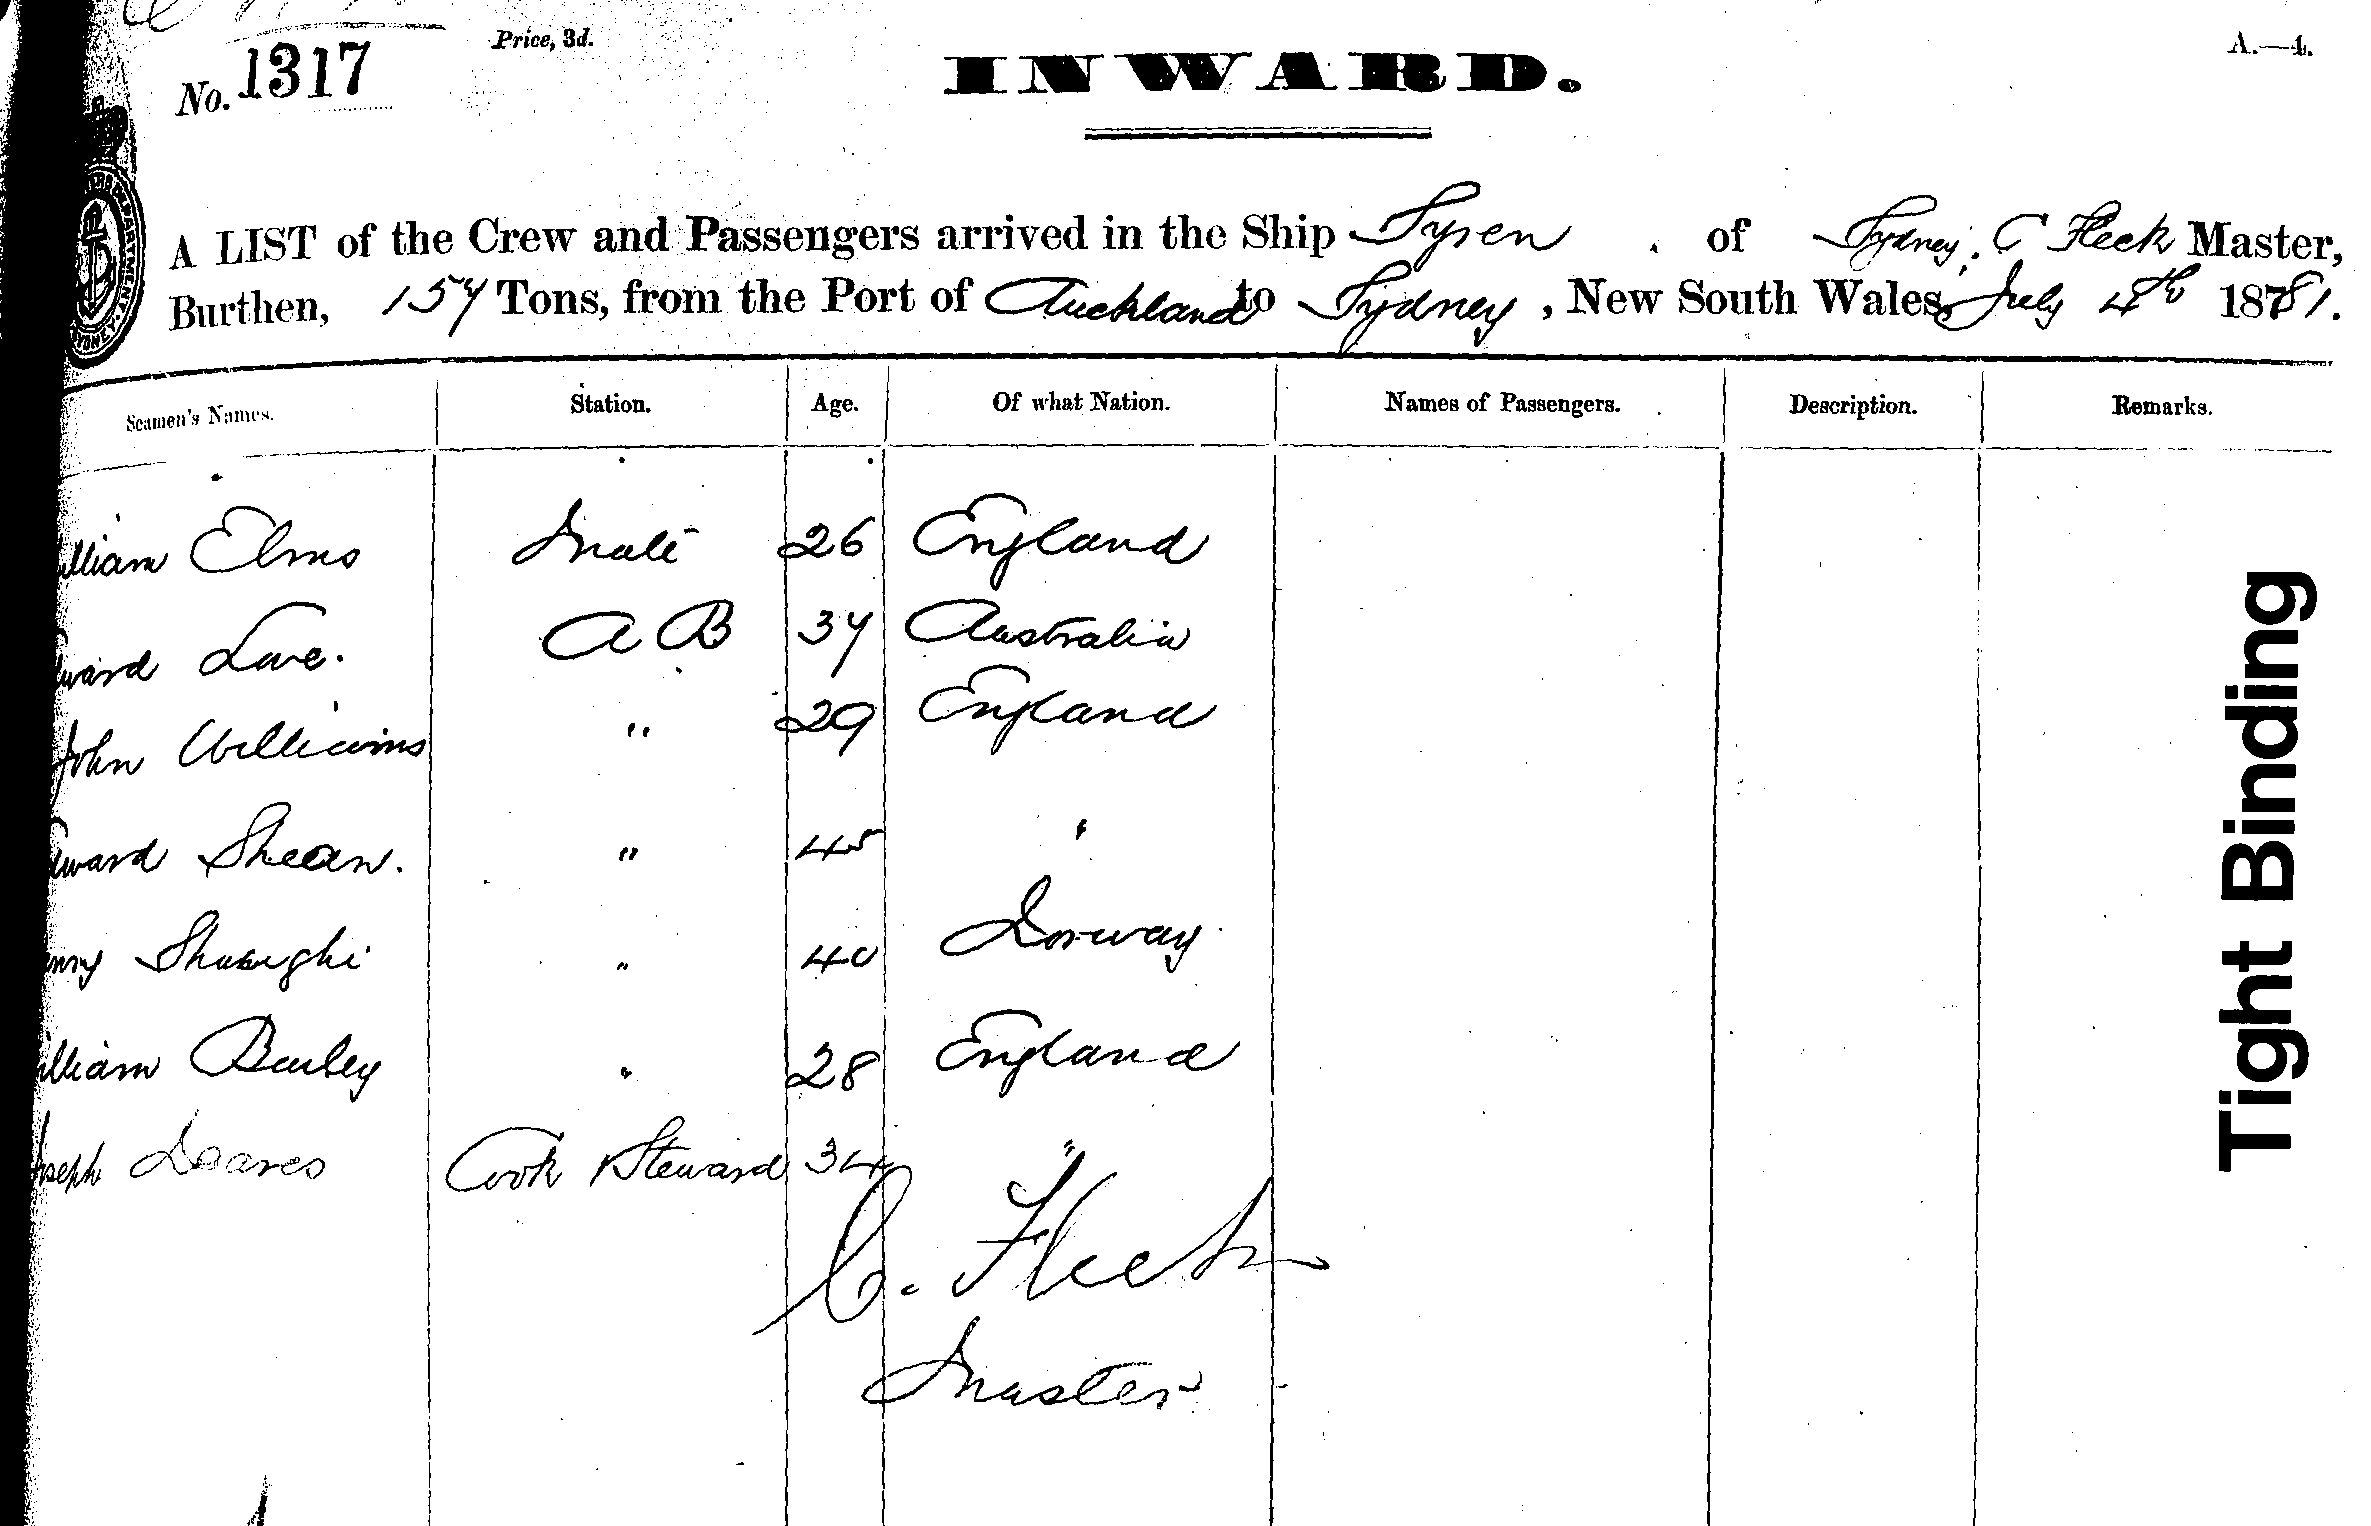 No. 1317
Price, 3d.
INWARD.
A.—4.
A LIST of the Crew and Passengers arrived in the Ship Syren of Sydney, C Fleck Master,
Burthen, 157 Tons, from the Port of Auckland to Sydney, New South Wales, July 4th 1881.
Seamen's Names. Station. Age. Of what Nation. Names of Passengers. Description. Remarks.
illiam Elms Mate 26 England
ward Love. A B 37 Australia
John Williams " 29 England
dward Shean. " 45 "
enry " 40 Norway
illiam Bailey " 28 England
oseph Deaves Cook & Steward 34 "
C. Fleck
Master
Tight Binding